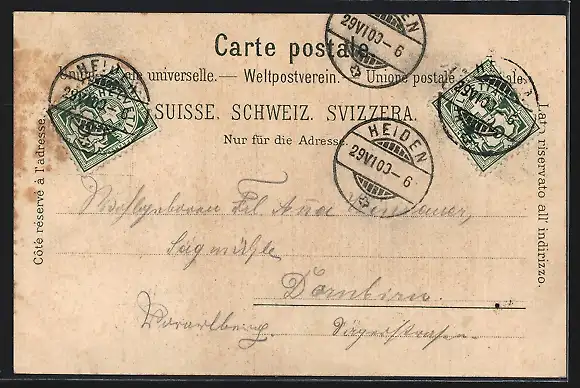 Carte postale.
Union postale universelle. — Weltpostverein. — Unione postale universale.
SUISSE. SCHWEIZ. SVIZZERA.
Nur für die Adresse.
Côté réservé à l'adresse.
Lato riservato all' indirizzo.
HEIDEN
29 VI 00 - 6
HEIDEN
29 VI 00 - 6
HEIDEN
29 VI 00
HELVETIA
29 VI 00
Wohlgeboren Frl. Anna
Sägmühle
Dornbirn.
Vorarlberg. Sägerstrasse.